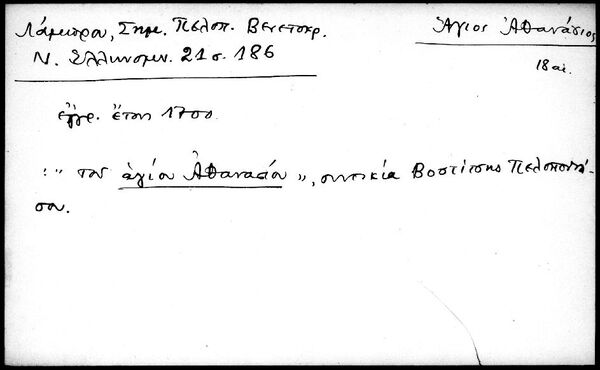 Λάμπρου, Σημ. Πελοπ. Βενετοκρ.
Ν. Ἑλληνομν. 21 σ. 186
Ἅγιος Ἀθανάσιος
18 αἰ.
ἔγγρ. ἔτους 1700
: " τοῦ ἁγίου Ἀθανασίου ", συνοικία Βοστίτσης Πελοποννή-
σου.